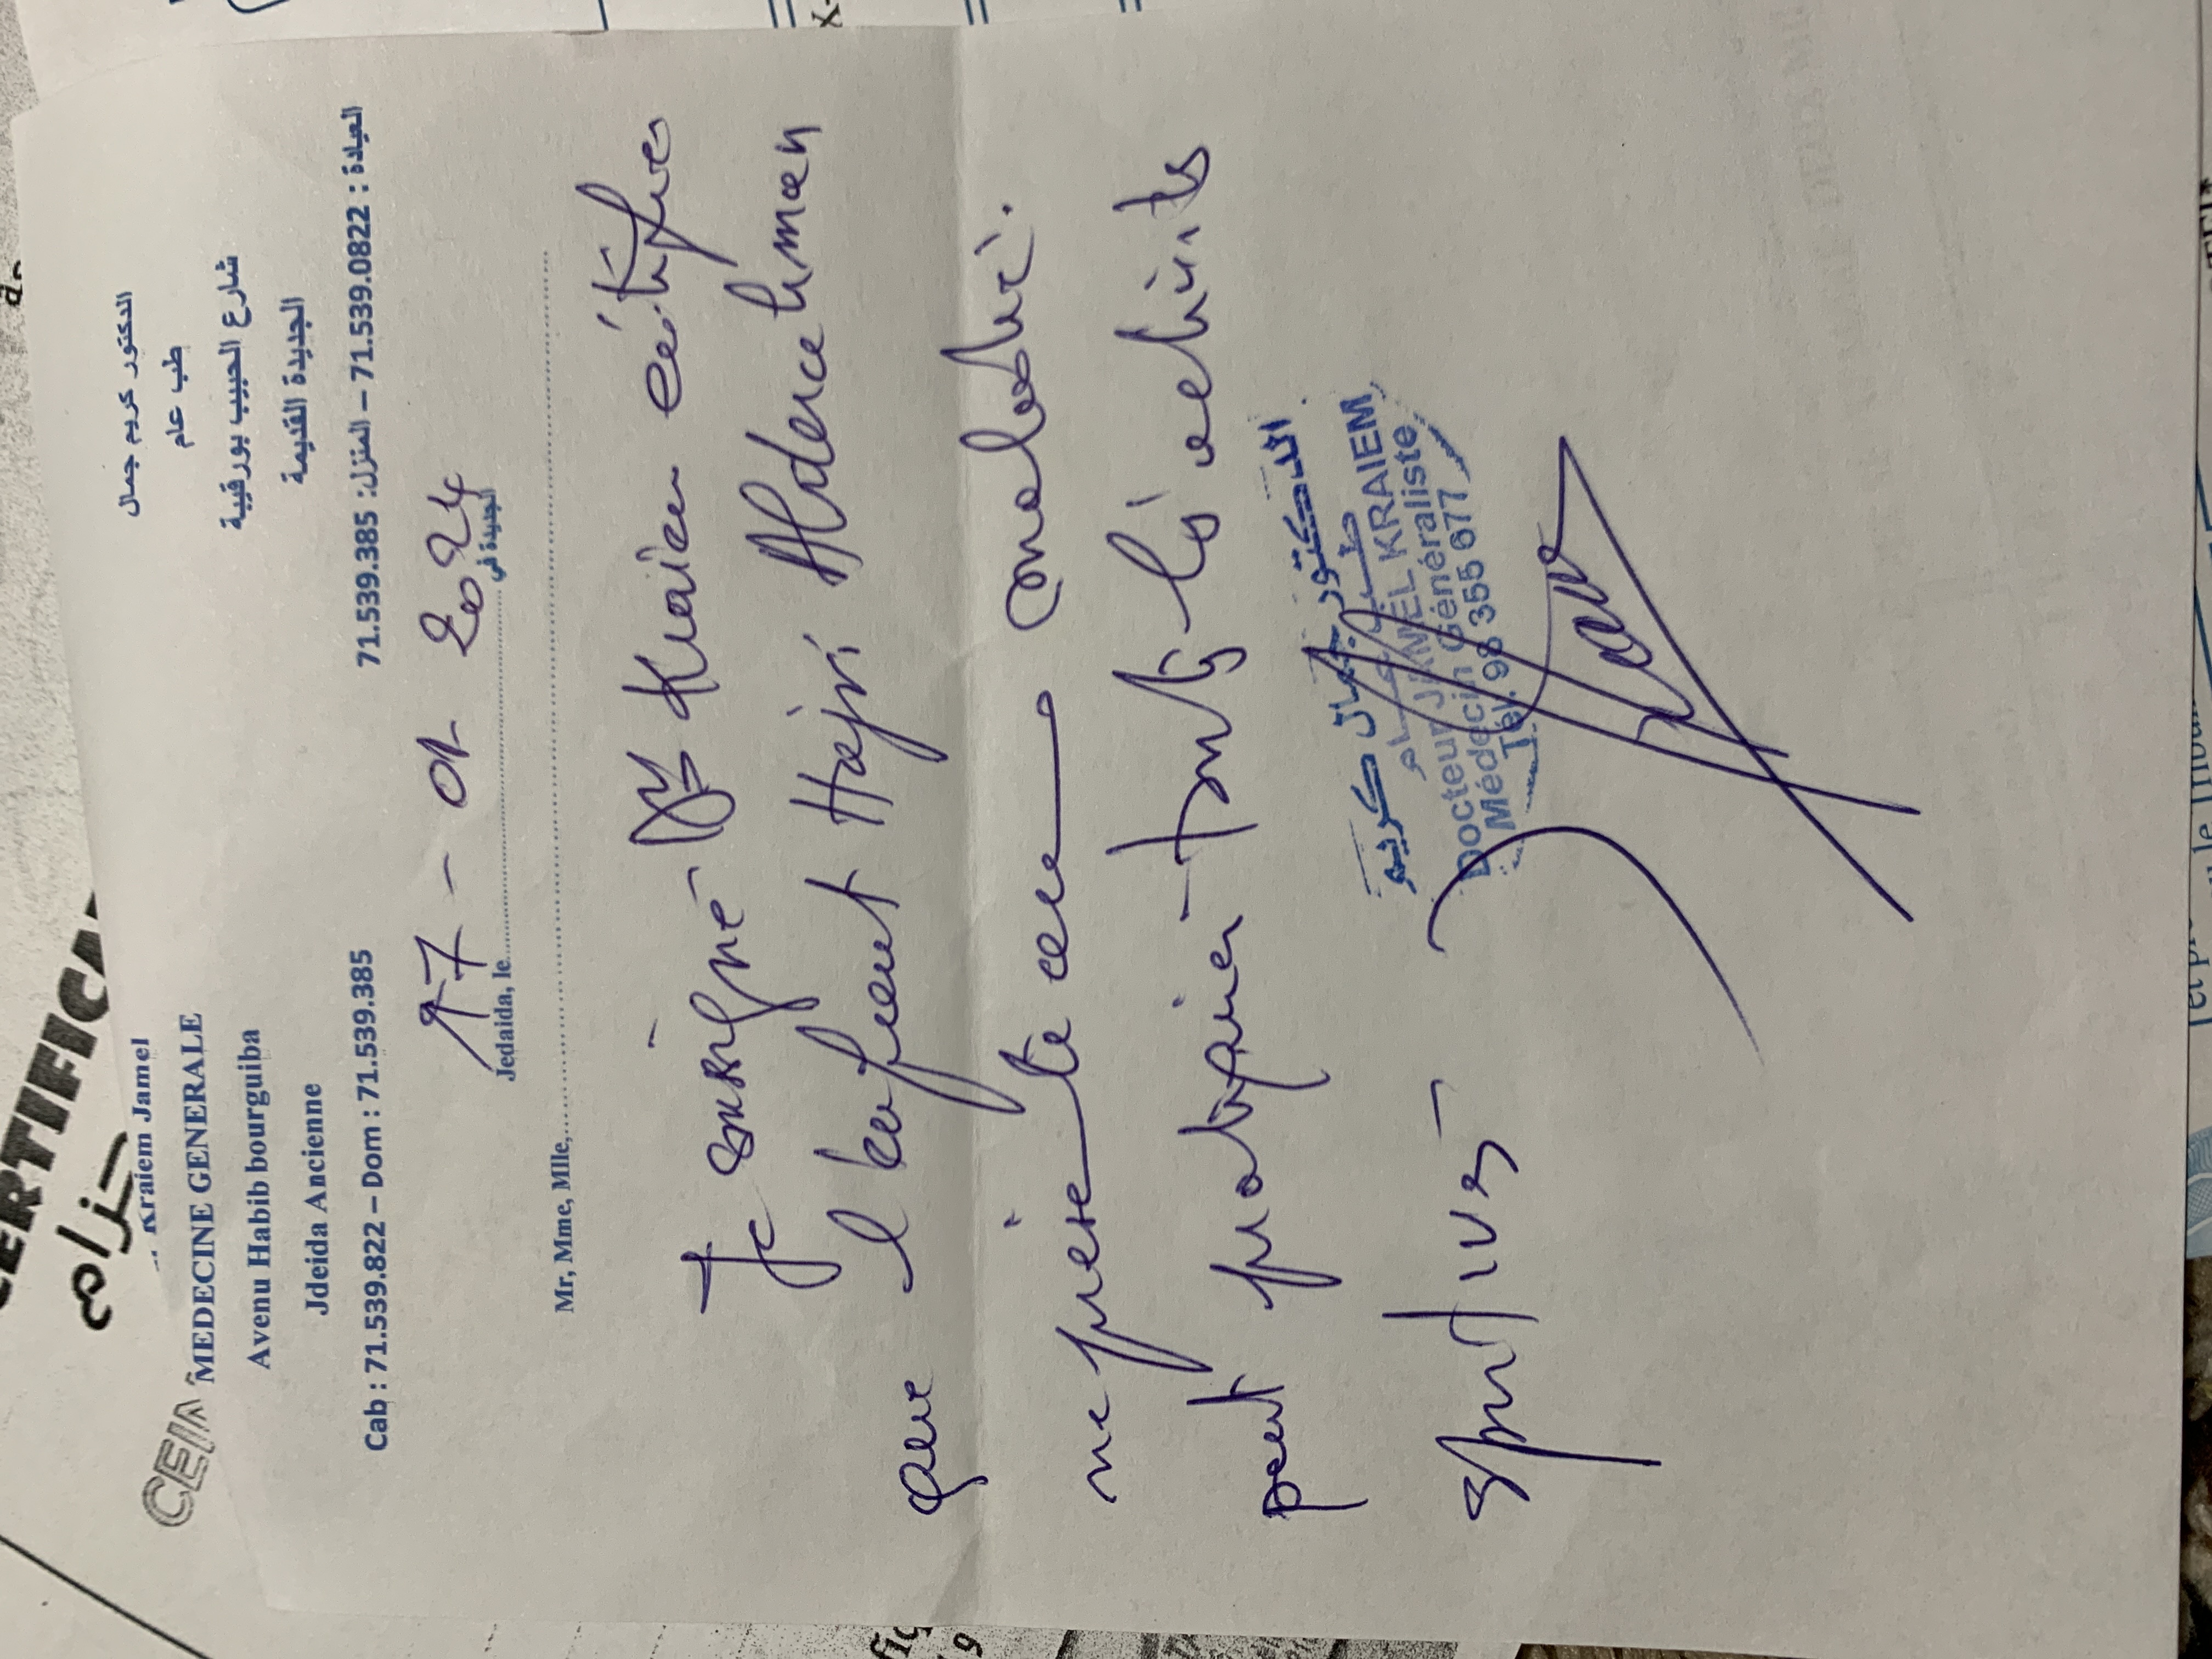 CERTIFICA
حزام
Kraiem Jamel
الدكتور كريم جمال
MEDECINE GENERALE
طب عام
Avenu Habib bourguiba
شارع الحبيب بورقيبة
Jdeida Ancienne
الجديدة القديمة
Cab : 71.539.822 – Dom : 71.539.385
العيادة : 71.539.0822 – المنزل: 71.539.385
17 - 01 - 2024
Jedaida, le
الجديدة في
Mr, Mme, Mlle,
Je soussigné Dr Kraiem certifie
que l'enfant Hajri Abderrahman
ne présente aucune maladie.
peut pratiquer toutes les activités
sportives
الدكتور جمال كريم
Docteur JAMEL KRAIEM
Médecin Généraliste
Tél. 98 355 677